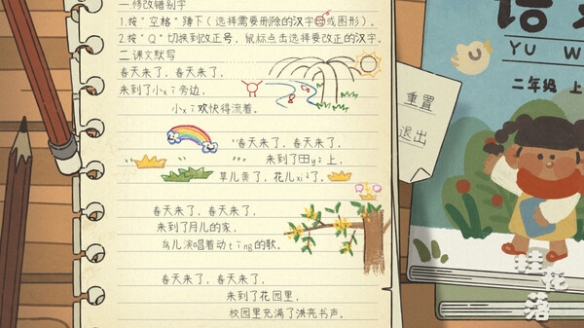 一.修改错别字
1.按"空格"蹲下(选择需要删除的汉字或图形)。
2.按"Q"切换到改正号，鼠标点击选择要改正的汉字。
二.课文默写
春天来了，春天来了，
来到了小xī旁边，
小xī欢快得流着。
"春天来了，春天来了，
来到了田yě上，
草儿青了，花儿xiǎ了，
春天来了，春天来了，
来到了月儿的家，
鸟儿演唱着动tīng的歌。
春天来了，春天来了，
来到了花园里，
校园里充满了漂亮书声。
重置
退出
语
YU W
二年级 上
桂花落